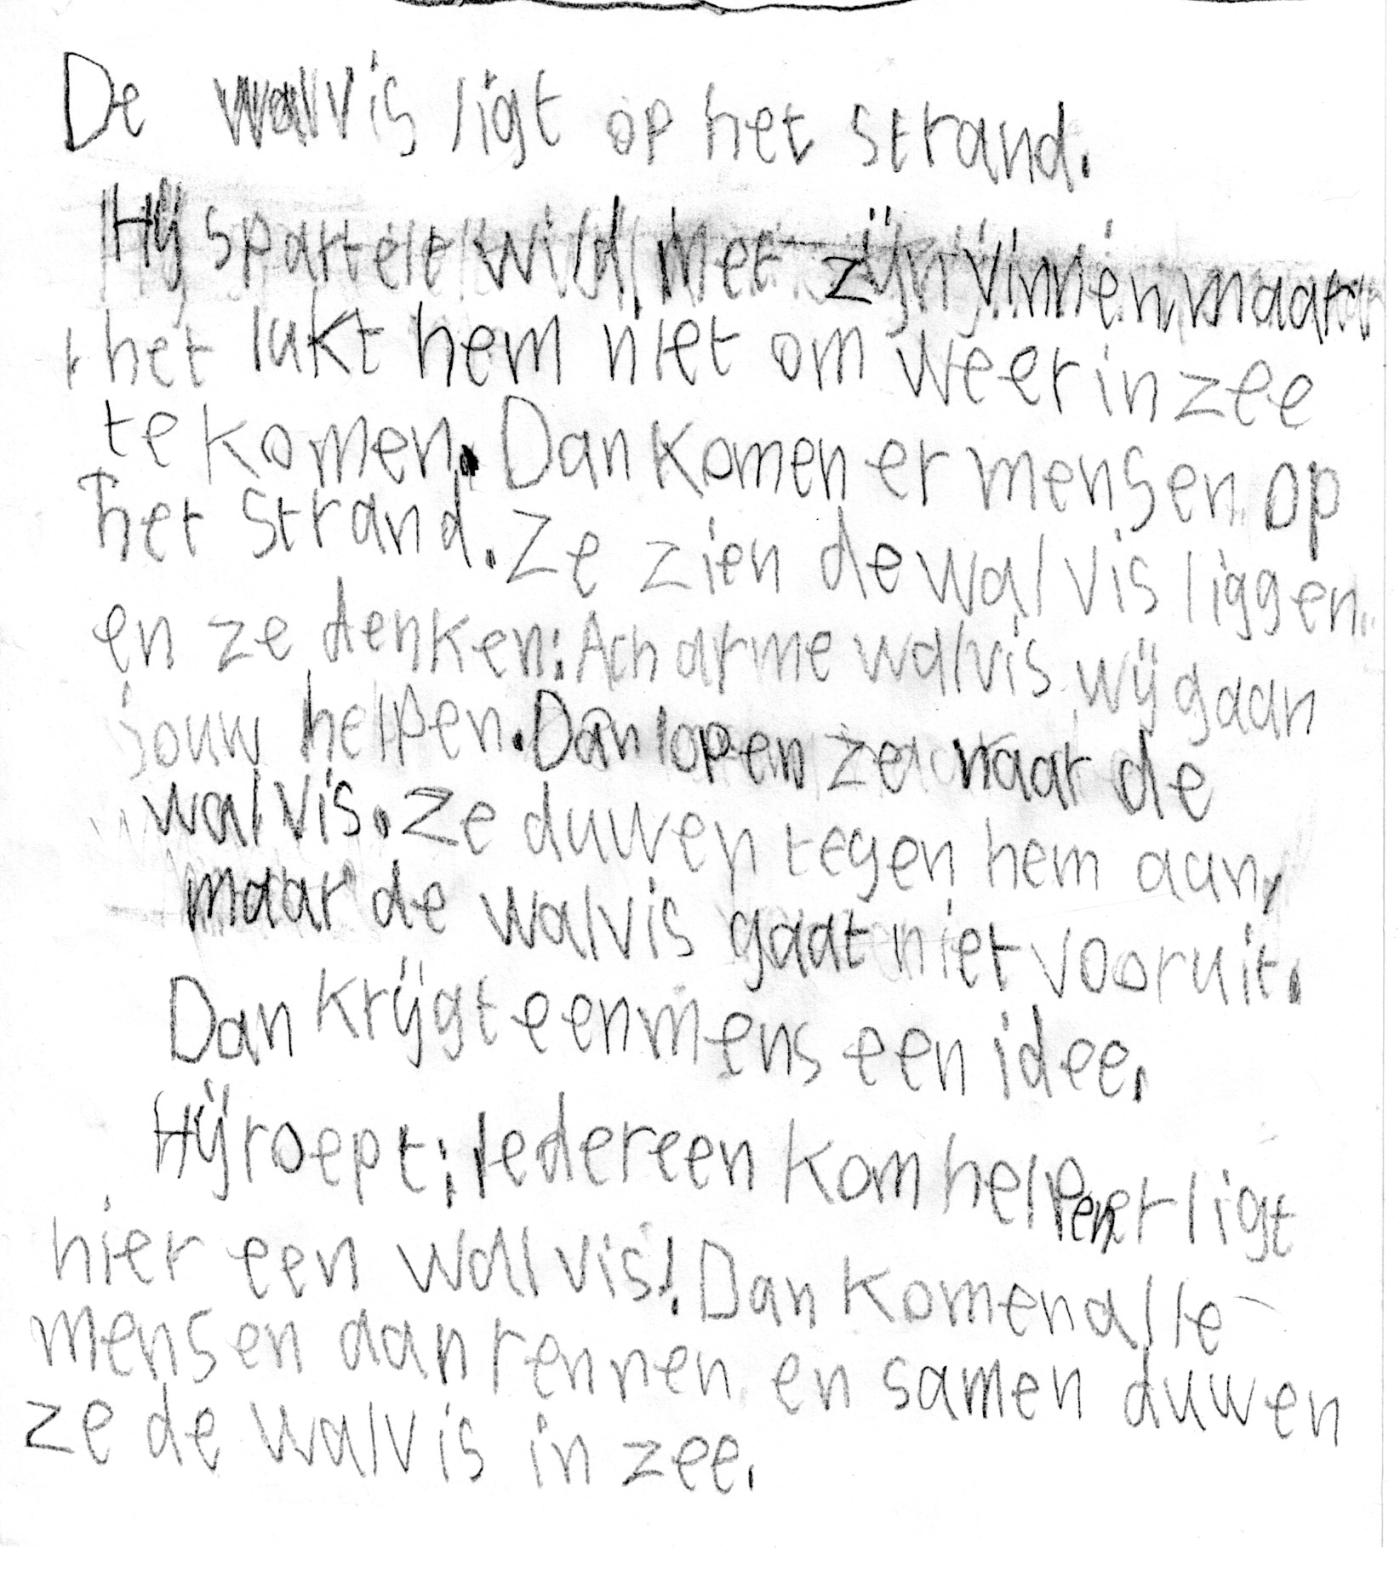 De walvis ligt op het strand.
Hij spartelt wild met zijn vinnen, maar
het lukt hem niet om weer in zee
te komen. Dan komen er mensen op
het strand. Ze zien de walvis liggen
en ze denken: Ach arme walvis wij gaan
jouw helpen. Dan lopen ze naar de
walvis. Ze duwen tegen hem aan,
maar de walvis gaat niet vooruit.
Dan krijgt een mens een idee.
Hij roept: Iedereen kom helpen er ligt
hier een walvis! Dan komen alle
mensen aan rennen en samen duwen
ze de walvis in zee.